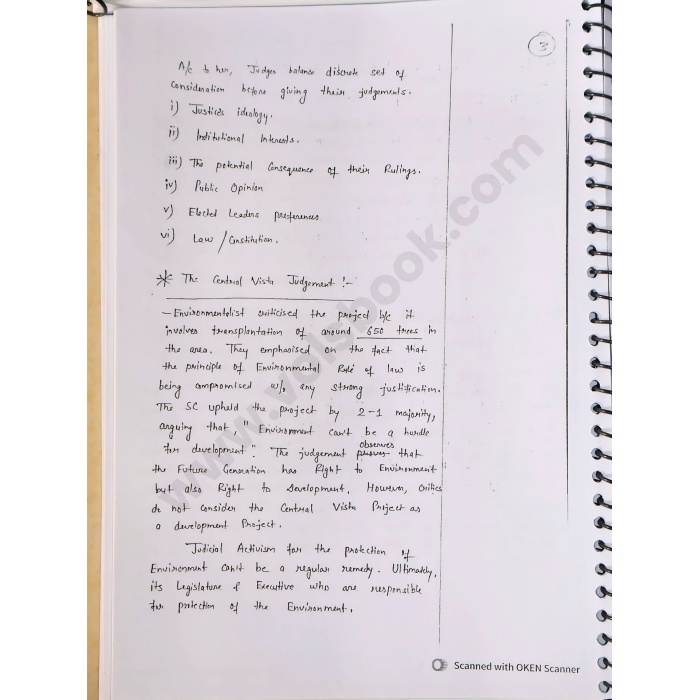 3
A/c to her, Judges balance discrete set of
consideration before giving their judgements.
i) Justice's ideology.
ii) Institutional Interests.
iii) The potential Consequence of their Rulings.
iv) Public Opinion
v) Elected Leaders preferences
vi) Law / Constitution.
* The Central Vista Judgement :-
- Environmentalist criticised the project b/c it
involves transplantation of around 650 trees in
the area. They emphasised on the fact that
the principle of Environmental Rule of law is
being compromised w/o any strong justification.
The SC upheld the project by 2-1 majority,
arguing that, "Environment can't be a hurdle
for development". The judgement observes that
the Future Generation has Right to Environment
but also Right to Development. However, Critics
do not consider the Central Vista Project as
a development Project.
Judicial Activism for the protection of
Environment can't be a regular remedy. Ultimately,
its Legislature & Executive who are responsible
for protection of the Environment.
Scanned with OKEN Scanner